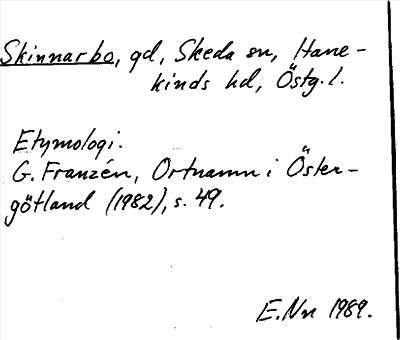 Skinnarbo, gd, Skeda sn, Hane-
kinds hd, Östg. l.
Etymologi.
G. Franzén, Ortnamn i Öster-
götland (1982), s. 49.
E. Nn 1989.